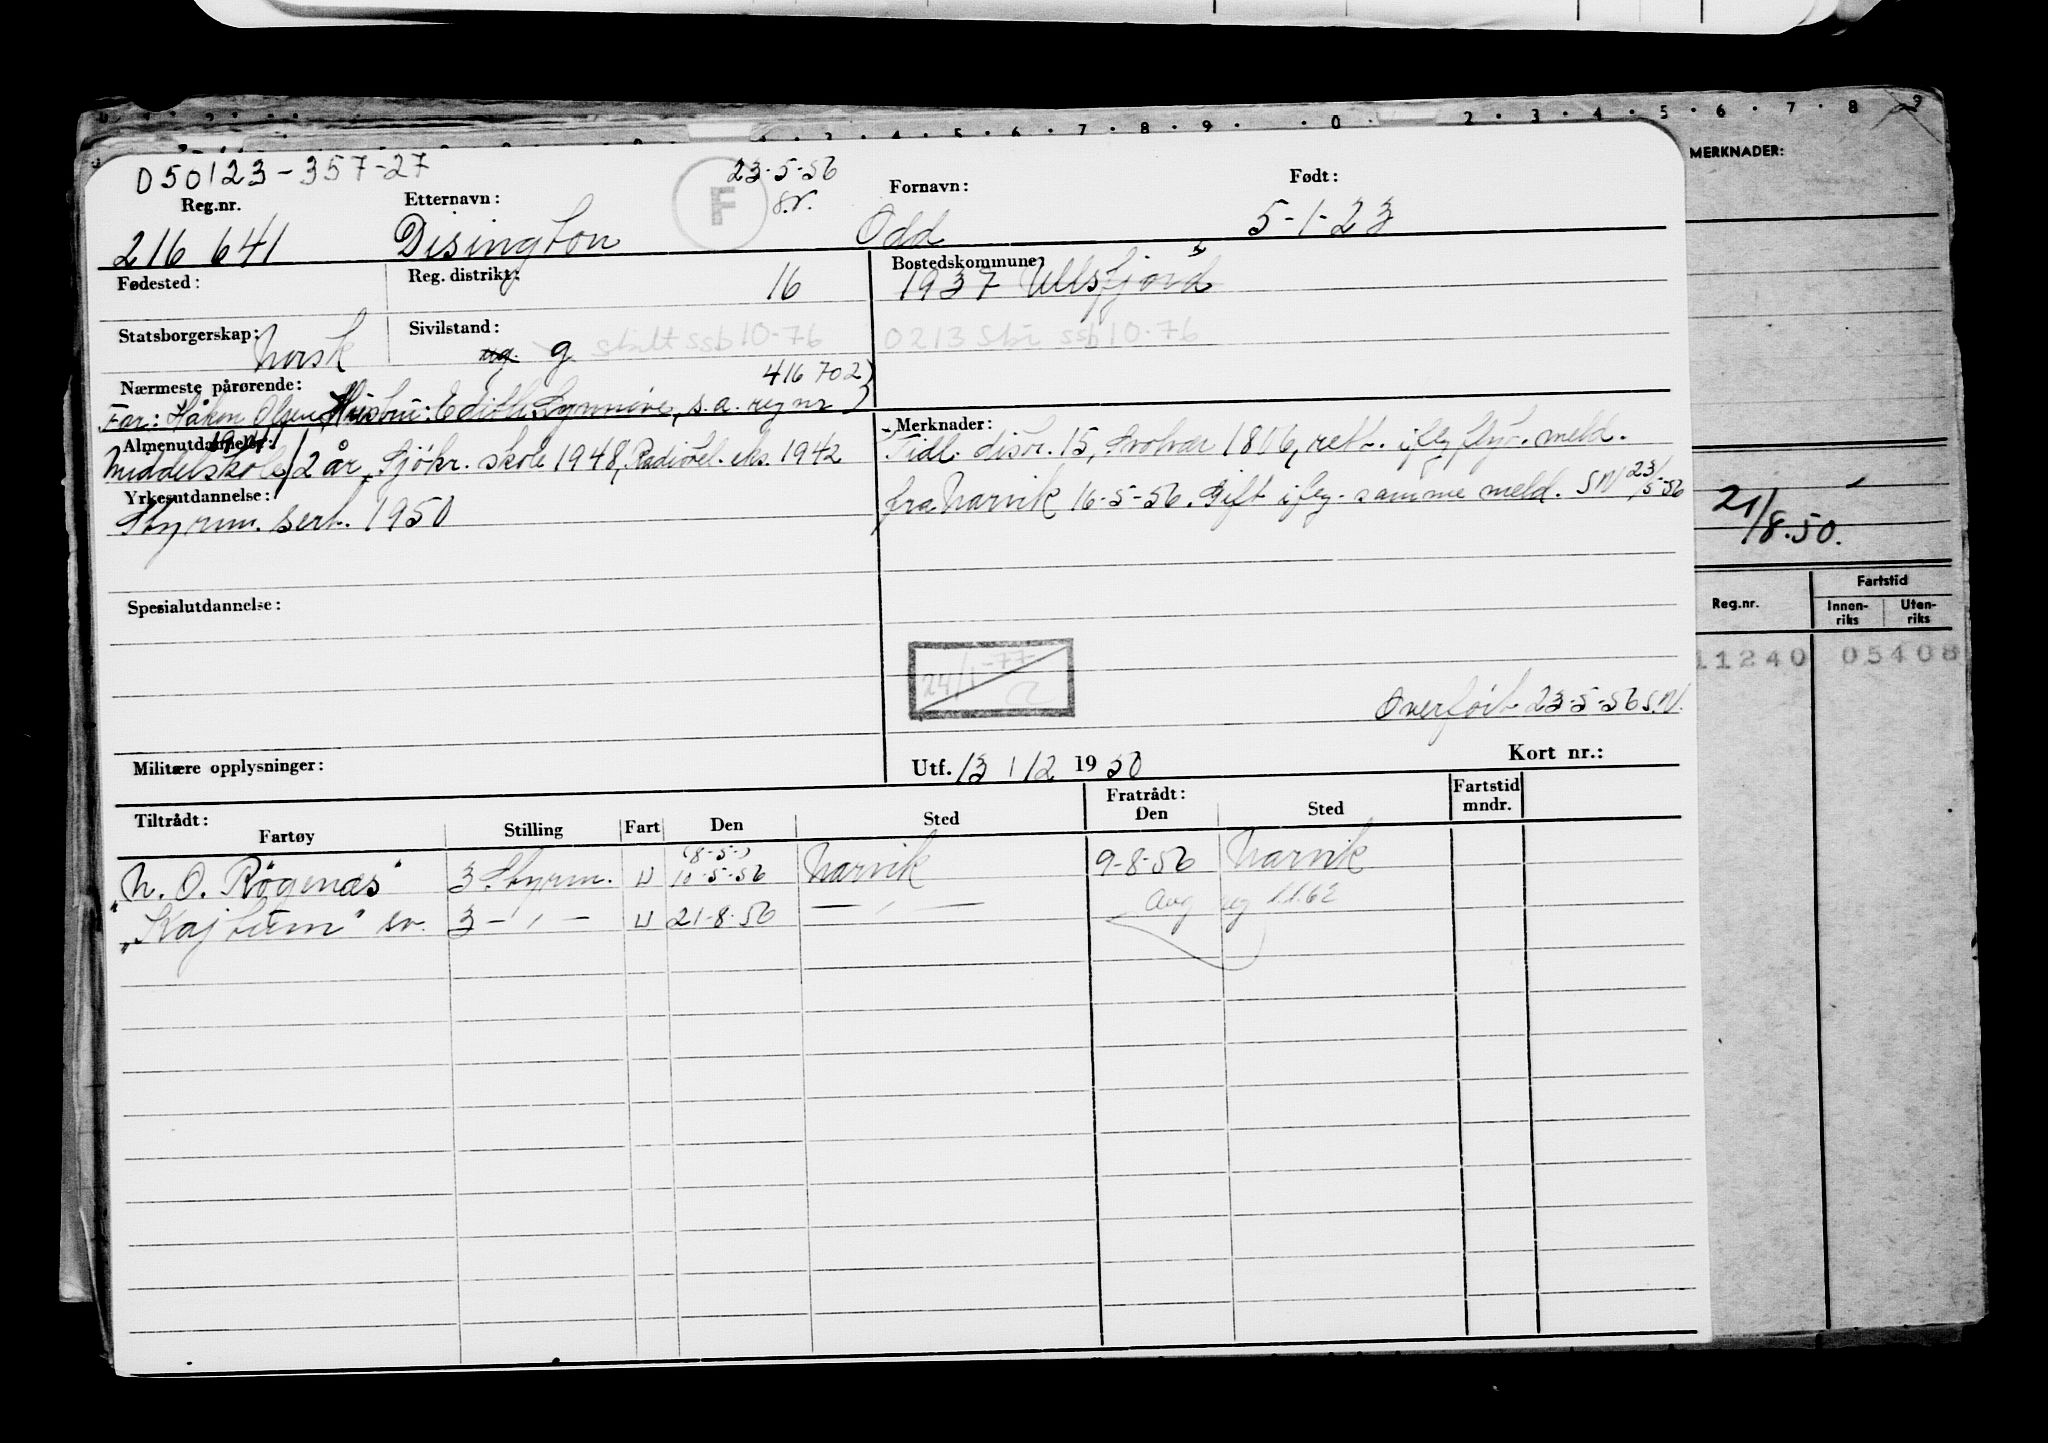 0 . 1 . 2
3 . 4 . 5 . 6 . 7 . 8 . 9 . 0 . 2 . 3 . 4 . 5 . 6 . 7 . 8 . 9
MERKNADER:
D50123-357-27
F
23-5-56
Reg.nr.
Etternavn:
Fornavn:
Født:
216 641
Disington
Odd
5-1-23
Fødested:
Reg. distrikt:
16
Bostedskommune:
1937 Ullsfjord
Statsborgerskap:
Norsk
Sivilstand:
ug. g skilt ssb 10-76
0213 Ski ssb 10-76
Nærmeste pårørende:
416 702)
Far: Håken Olsen Hustru: Edith Synnøve, s.a. reg nr
Almenutdannelse:
Merknader:
Middelskole 1941 / 2 år, Sjökr. skole 1948, Radiotel. eks. 1942
Tidl. distr. 15, Svolvær 1806, rett. iflg. flyt. meld.
Yrkesutdannelse:
Styrm. sert. 1950
fra Narvik 16-5-56. Gift iflg. samme meld. SN 23/5-56
21/8.50.
Spesialutdannelse:
Fartstid
Reg.nr.
Innen-riks
Uten-riks
11240 05408
24/1-77
Overført 23-5-56 SN.
Militære opplysninger:
Utf. 13 / 12 19 50
Kort nr.:
Tiltrådt:
Fratrådt:
Fartstid mndr.
Fartøy
Stilling
Fart
Den
Sted
Den
Sted
(8-5-)
"N. O. Rögenæs" 3 Styrm. U 10-5-56 Narvik 9-8-56 Narvik
"Kajtum" sv. 3 - " - U 21-8-56 — " — Avg ug 1.1.62